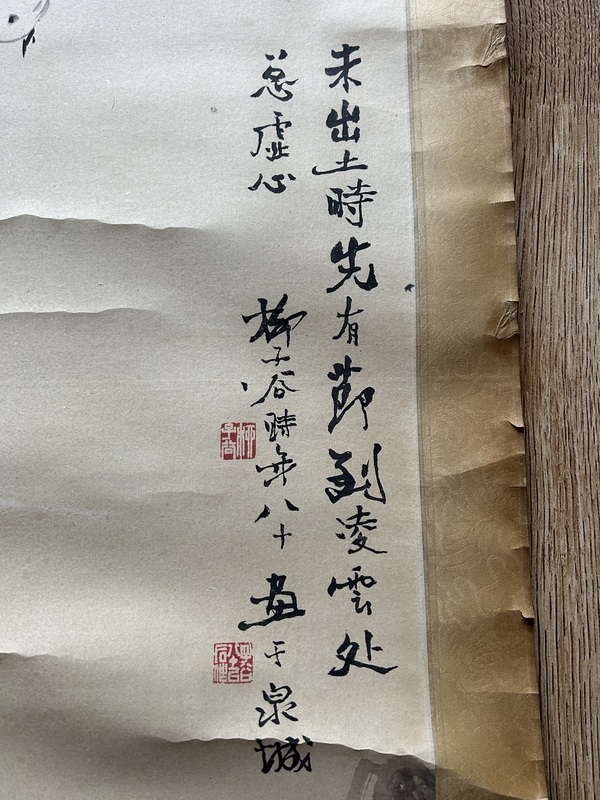 未出土時先有節到凌雲处
总虛心
柳子谷時年八十画于泉城
柳子谷